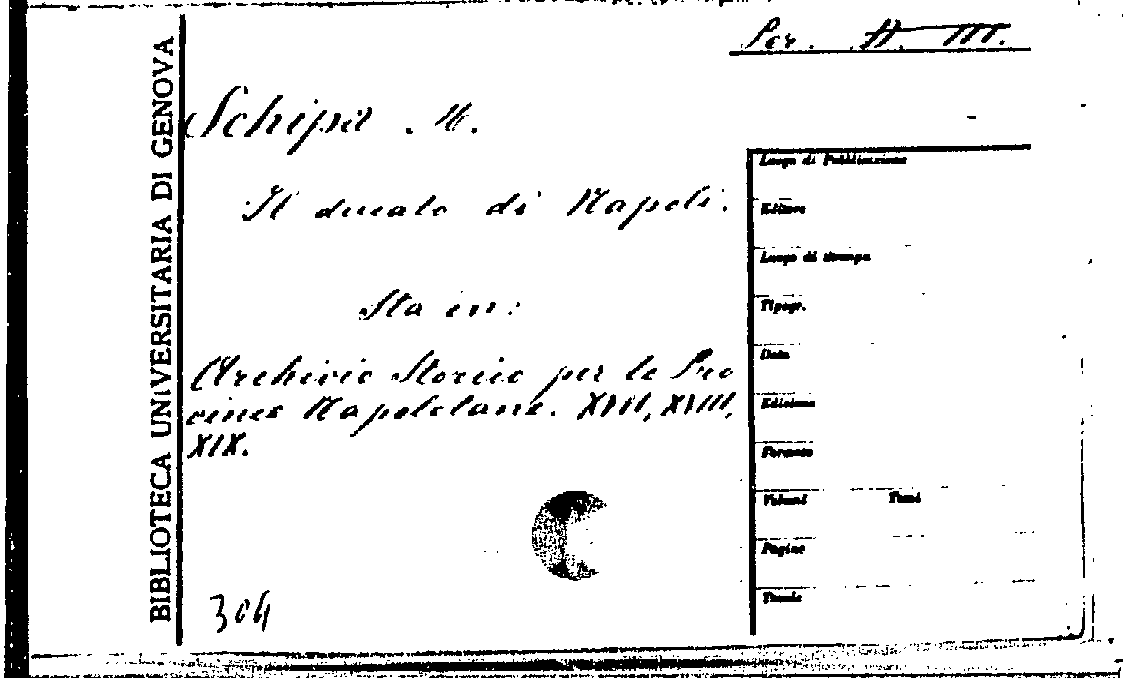 Per. II. III.
BIBLIOTECA UNIVERSITARIA DI GENOVA
Schipa M.
Il ducato di Napoli.
Sta in:
Archivio Storico per le Pro
vince Napoletane. XVII, XVIII,
XIX.
304
Luogo di Pubblicazione
Editore
Luogo di stampa
Tipogr.
Data
Edizione
Formato
Volumi Tomi
Pagine
Tavole